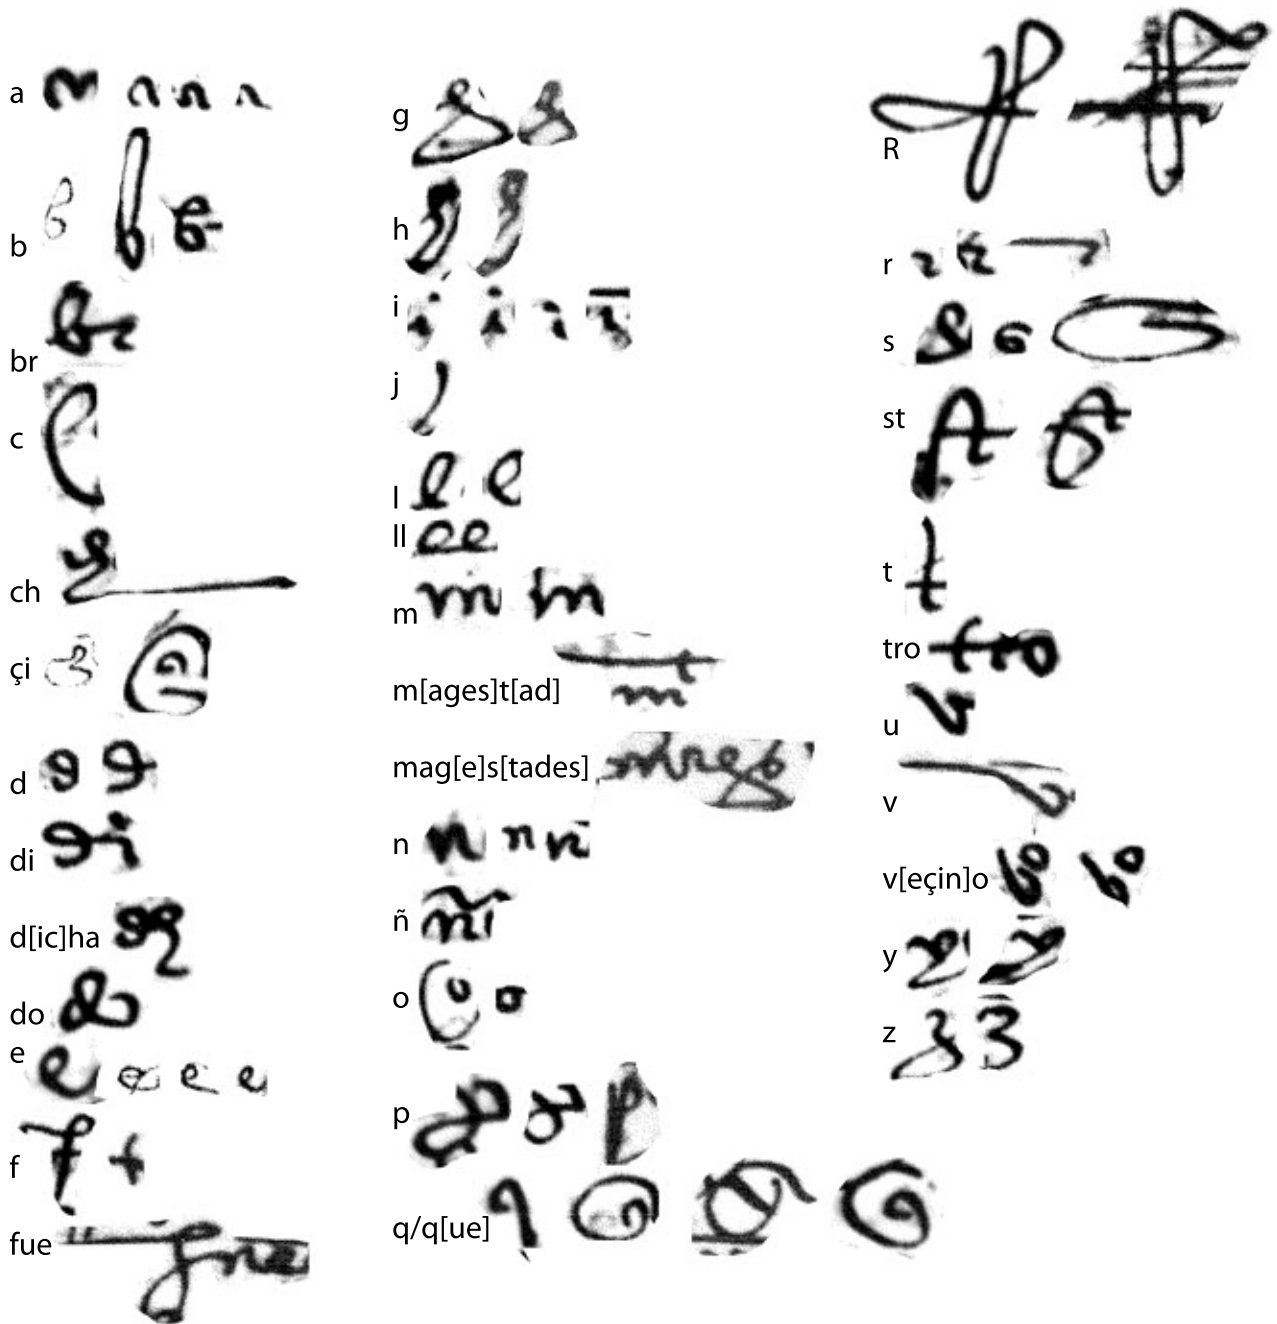 a
b
br
c
ch
çi
d
di
d[ic]ha
do
e
f
fue
g
h
i
j
l
ll
m
m[ages]t[ad]
mag[e]s[tades]
n
ñ
o
p
q/q[ue]
R
r
s
st
t
tro
u
v
v[eçin]o
y
z